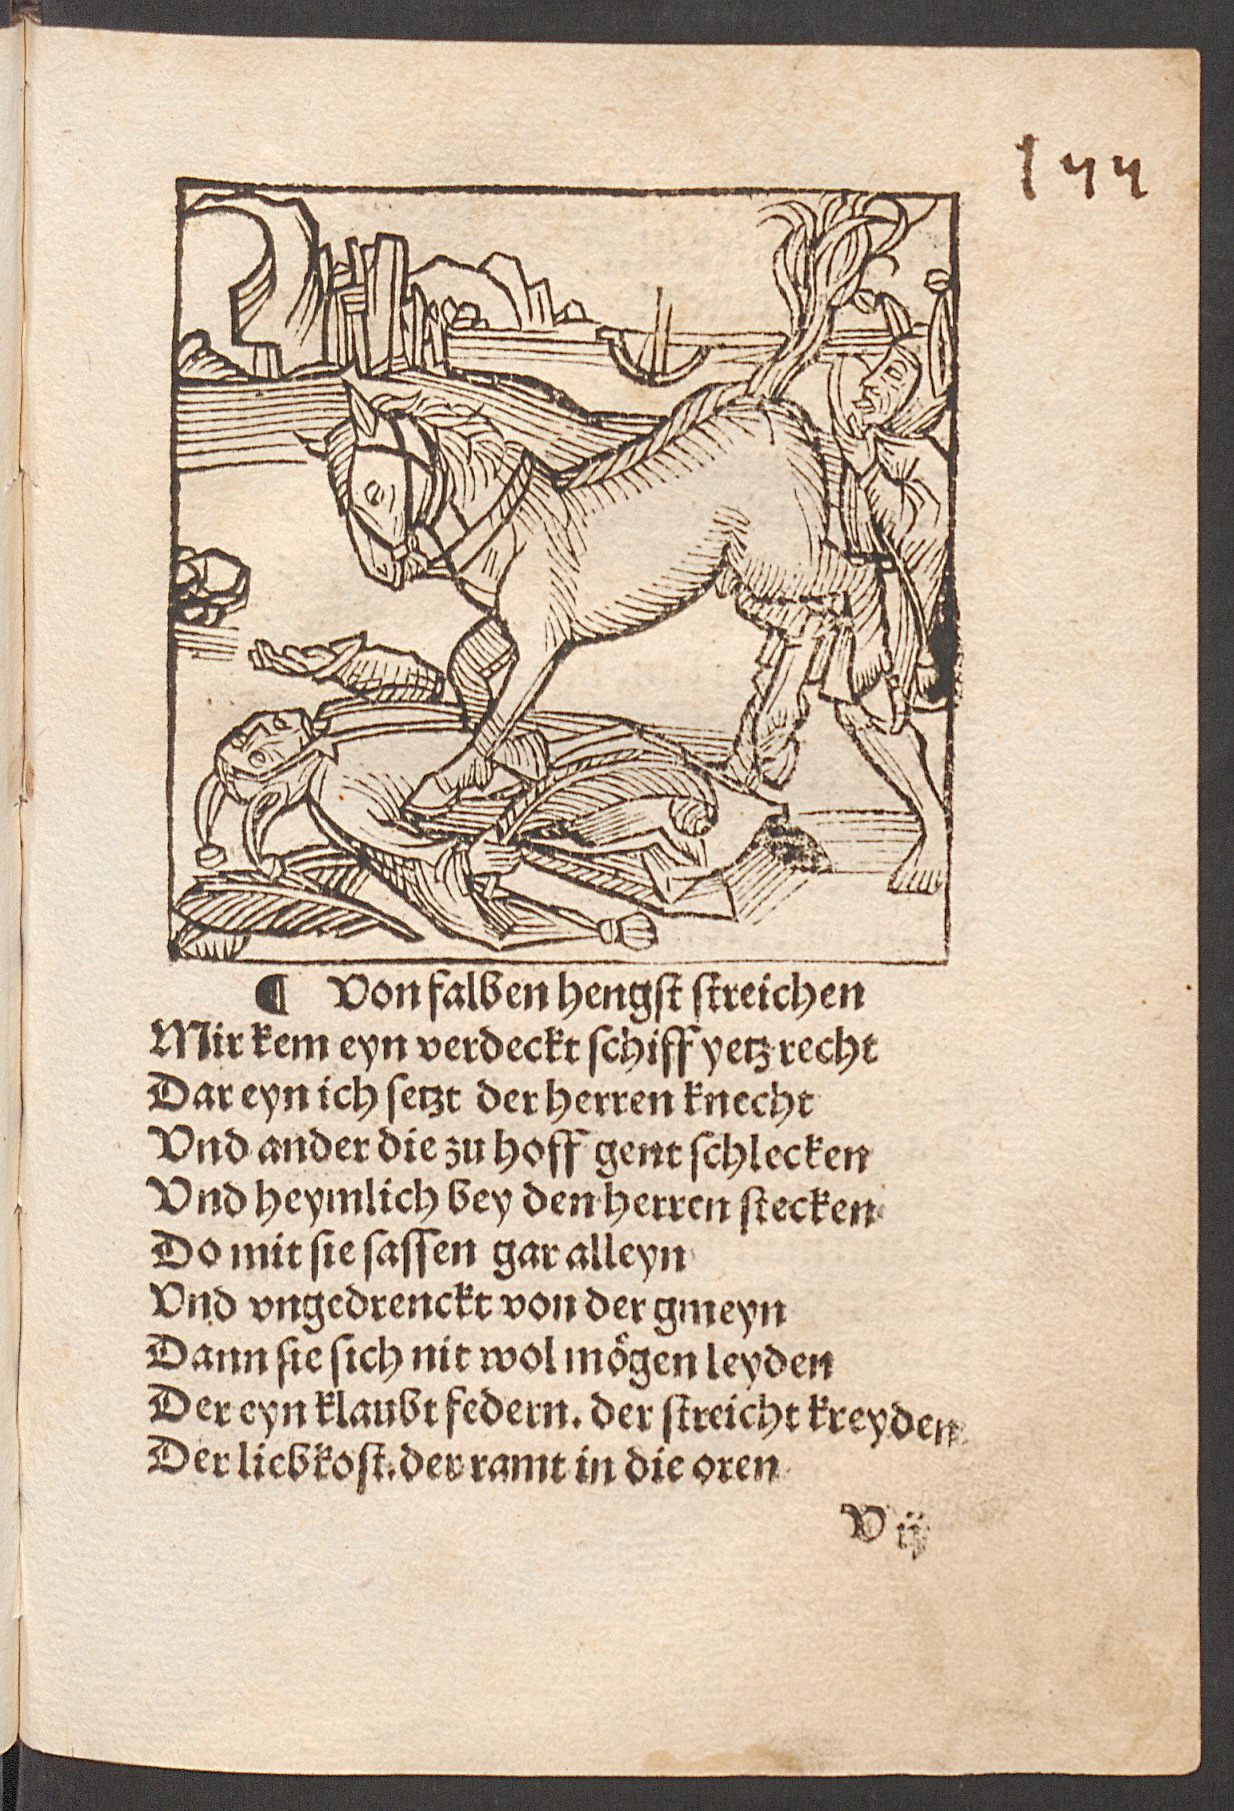 144
¶ Von falben hengst streichen
Mir kem eyn verdeckt schiff yetz recht
Dar eyn ich setzt der herren knecht
Vnd ander die zu hoff gent schlecken
Vnd heymlich bey den herren stecken
Do mit sie sassen gar alleyn
Vnd vngedrenckt von der gmeyn
Dann sie sich nit wol moͤgen leyden
Der eyn klaubt federn. der streicht kreyden
Der liebkost. der ramt in die oren
V ij